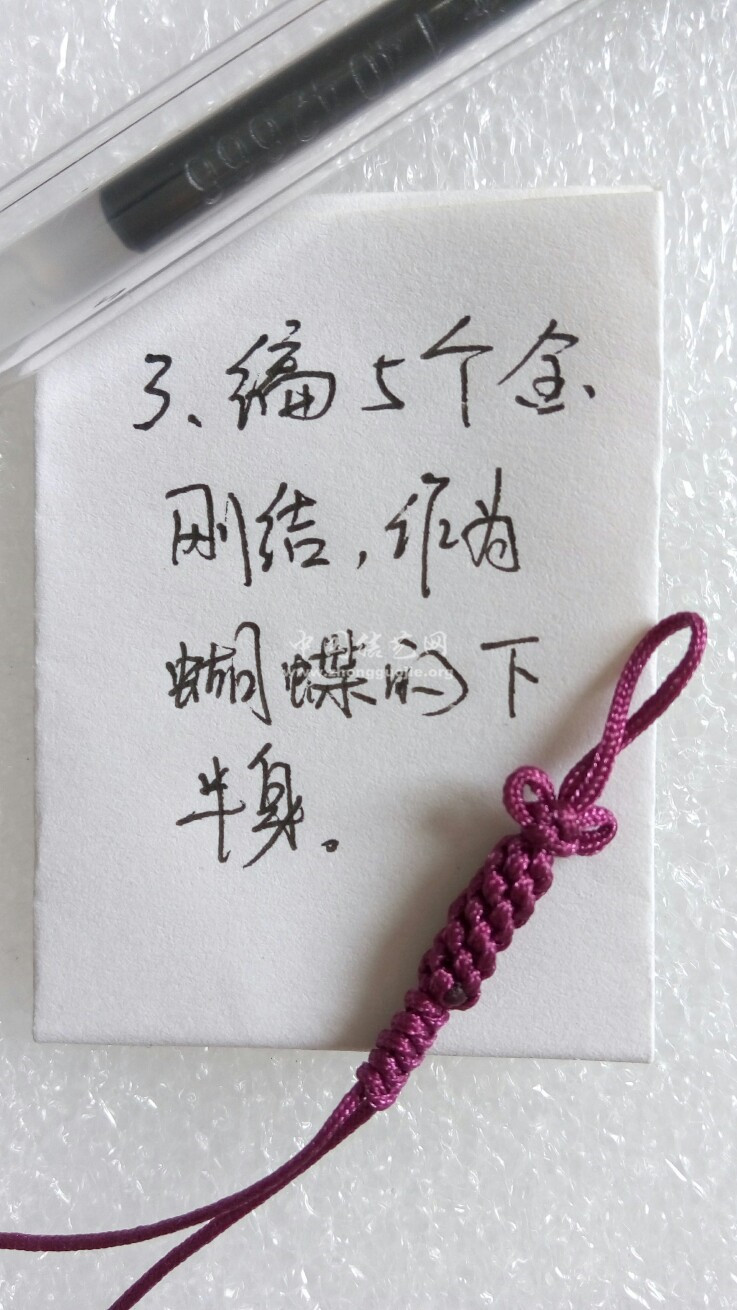 3、编5个金
刚结，作为
蝴蝶的下
半身。
中国结艺网
www.zhongguojie.org